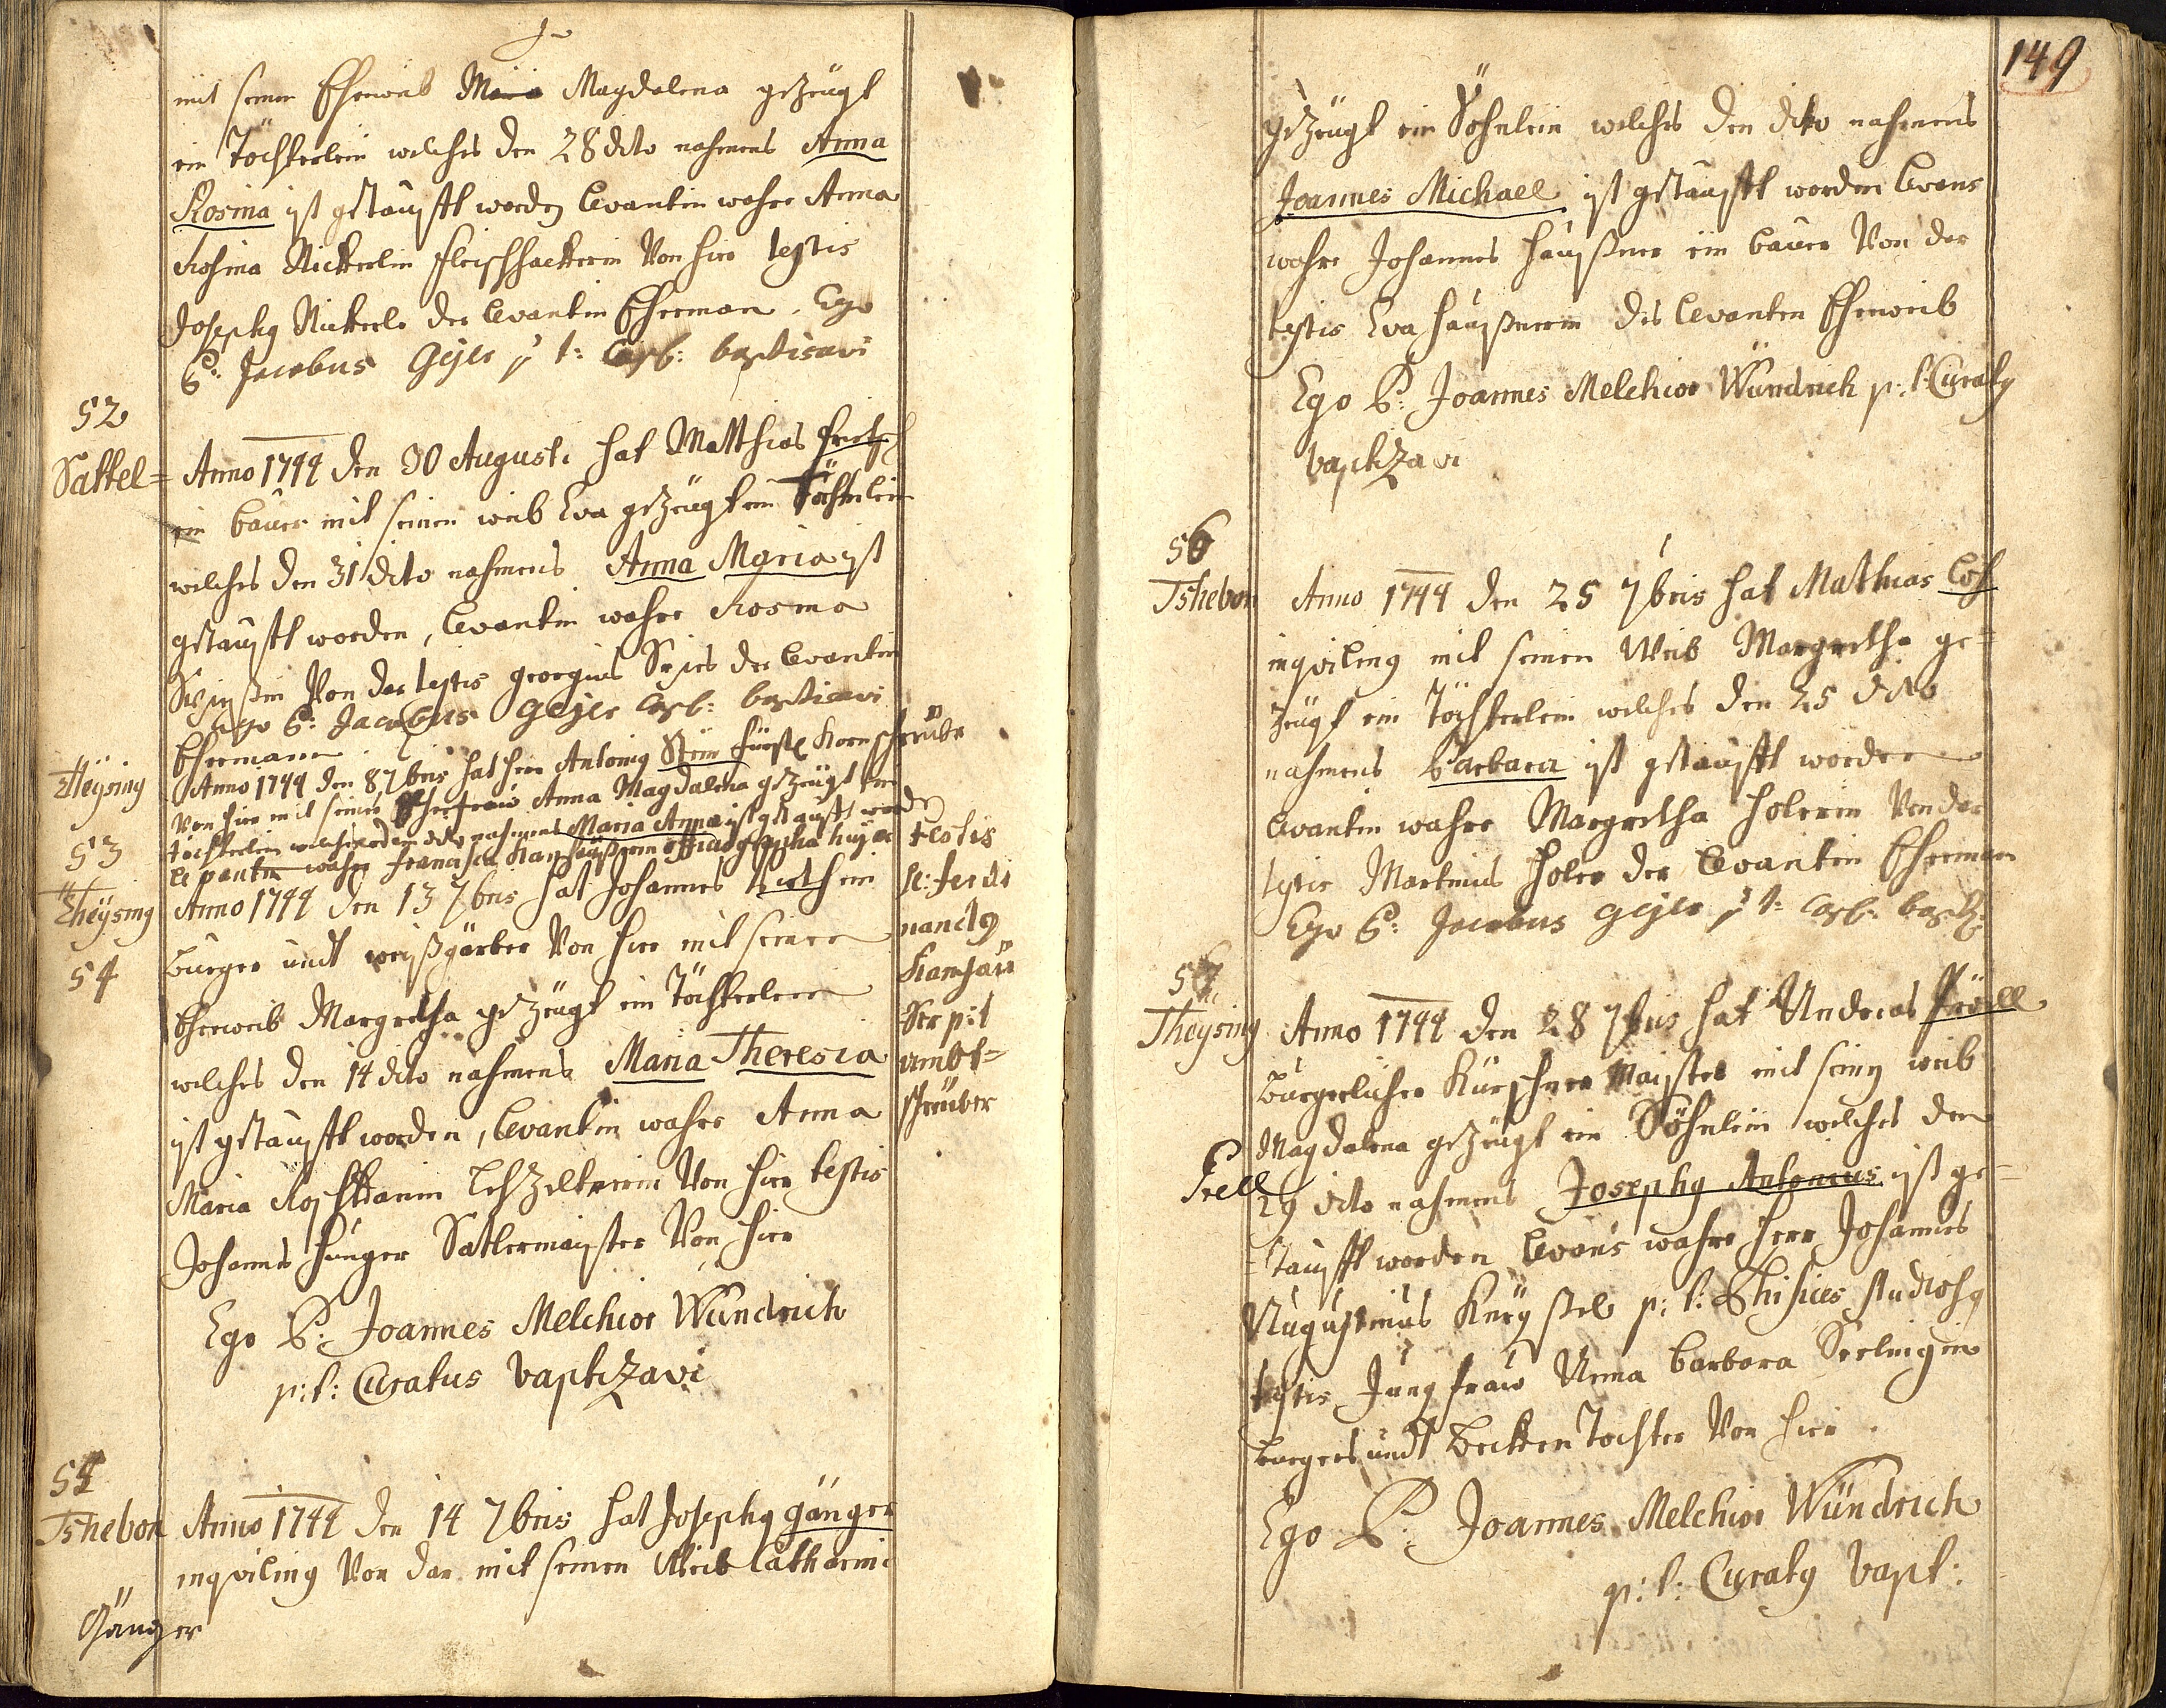 mit seinen Eheweib Maria Magdalena gezeugt
ein Töchterlein welches den 28 dito nahmens Anna
Rosina ist getaufft worden Levantin wahre Anna
Rosina Nickerlin fleischhackerin Von hier testis
Josephg Nickerle der Levantin Eheman. Ego
P: Jacobus Geyer p: t: Cap: baptisavi
52
Sattel=
Anno 1744 den 30 Augusti hat Matthias fritsch
ein bauer mit seinen weib Eva gezeugt ein Töchterlein
welches den 31 dito nahmens Anna Maria ist
getaufft worden, Levantin wahre Rosina
Von dar testis georgius der Levantin
Ego P: Jacobus Geyer Cap: baptisavi
Ehemann
Theysing
53
Anno 1744 den 8 7bris hat herr Antonig Stein fürstl Kornschreiber
Von hier mit seiner Ehefrau Anna Magdalena gezeugt ein
töchterlein welches den dito nahmens Maria Anna ist getaufft worden
Levantin wahre Francisca
testis
H: ferdi
nandg
p: t
ambt=
schreiber
Theysing
54
Anno 1744 den 13 7bris hat Johannes ein
burger undt weißgärber Von hier mit seinen
Eheweib Margretha gezeugt ein Töchterlein
welches den 14 dito nahmens Maria Theresia
ist getaufft worden, Levantin wahre Anna
Maria Lebzelterin Von hier testis
Johannes hunger Sattlermaister Von hier
Ego P: Joannes Melchior Wündrich
p: t: Curatus baptizavi
55
Tschebon
Anno 1744 den 14 7bris hat Josephg gänger
inqviling Von dar mit seinen Weib Catharina
Gänger
149
gezeugt ein Söhnlein welches den dito nahmens
Joannes Michael ist getaufft worden Levans
wahre Johannes haußner ein bauer Von dar
testis Eva haußnerin des Levanten Eheweib
Ego P: Joannes Melchior Wündrich p: t: Curatg
baptizavi
56
Tschebon
Anno 1744 den 25 7bris hat Mathias
inqviling mit seinen Weib Margretha ge=
zeugt ein Töchterlein welches den 25 dito
nahmens barbara ist getaufft worden
Levantin wahre Margretha holerin Von dar
testis Martinus holer der Levantin Eheman
Ego P: Jacobus Geyer p: t: Cap: bapt:
57
Theysing
Anno 1744 den 28 7bris hat Andreas Pröll
bürgerlicher Kürschner Maister mit seing weib
Magdalena gezeugt ein Söhnlein welches den
Prell
29 dito nahmens Josephg Antonius ist ge=
=taufft worden Levans wahre herr Johannes
Augustinus p: t: Phisices studiosg
testis Jungfraw Anna barbara Seelingin
burgers undt becken Tochter Von hier.
Ego P: Joannes Melchior Wündrich
p: t: Curatg bapt: